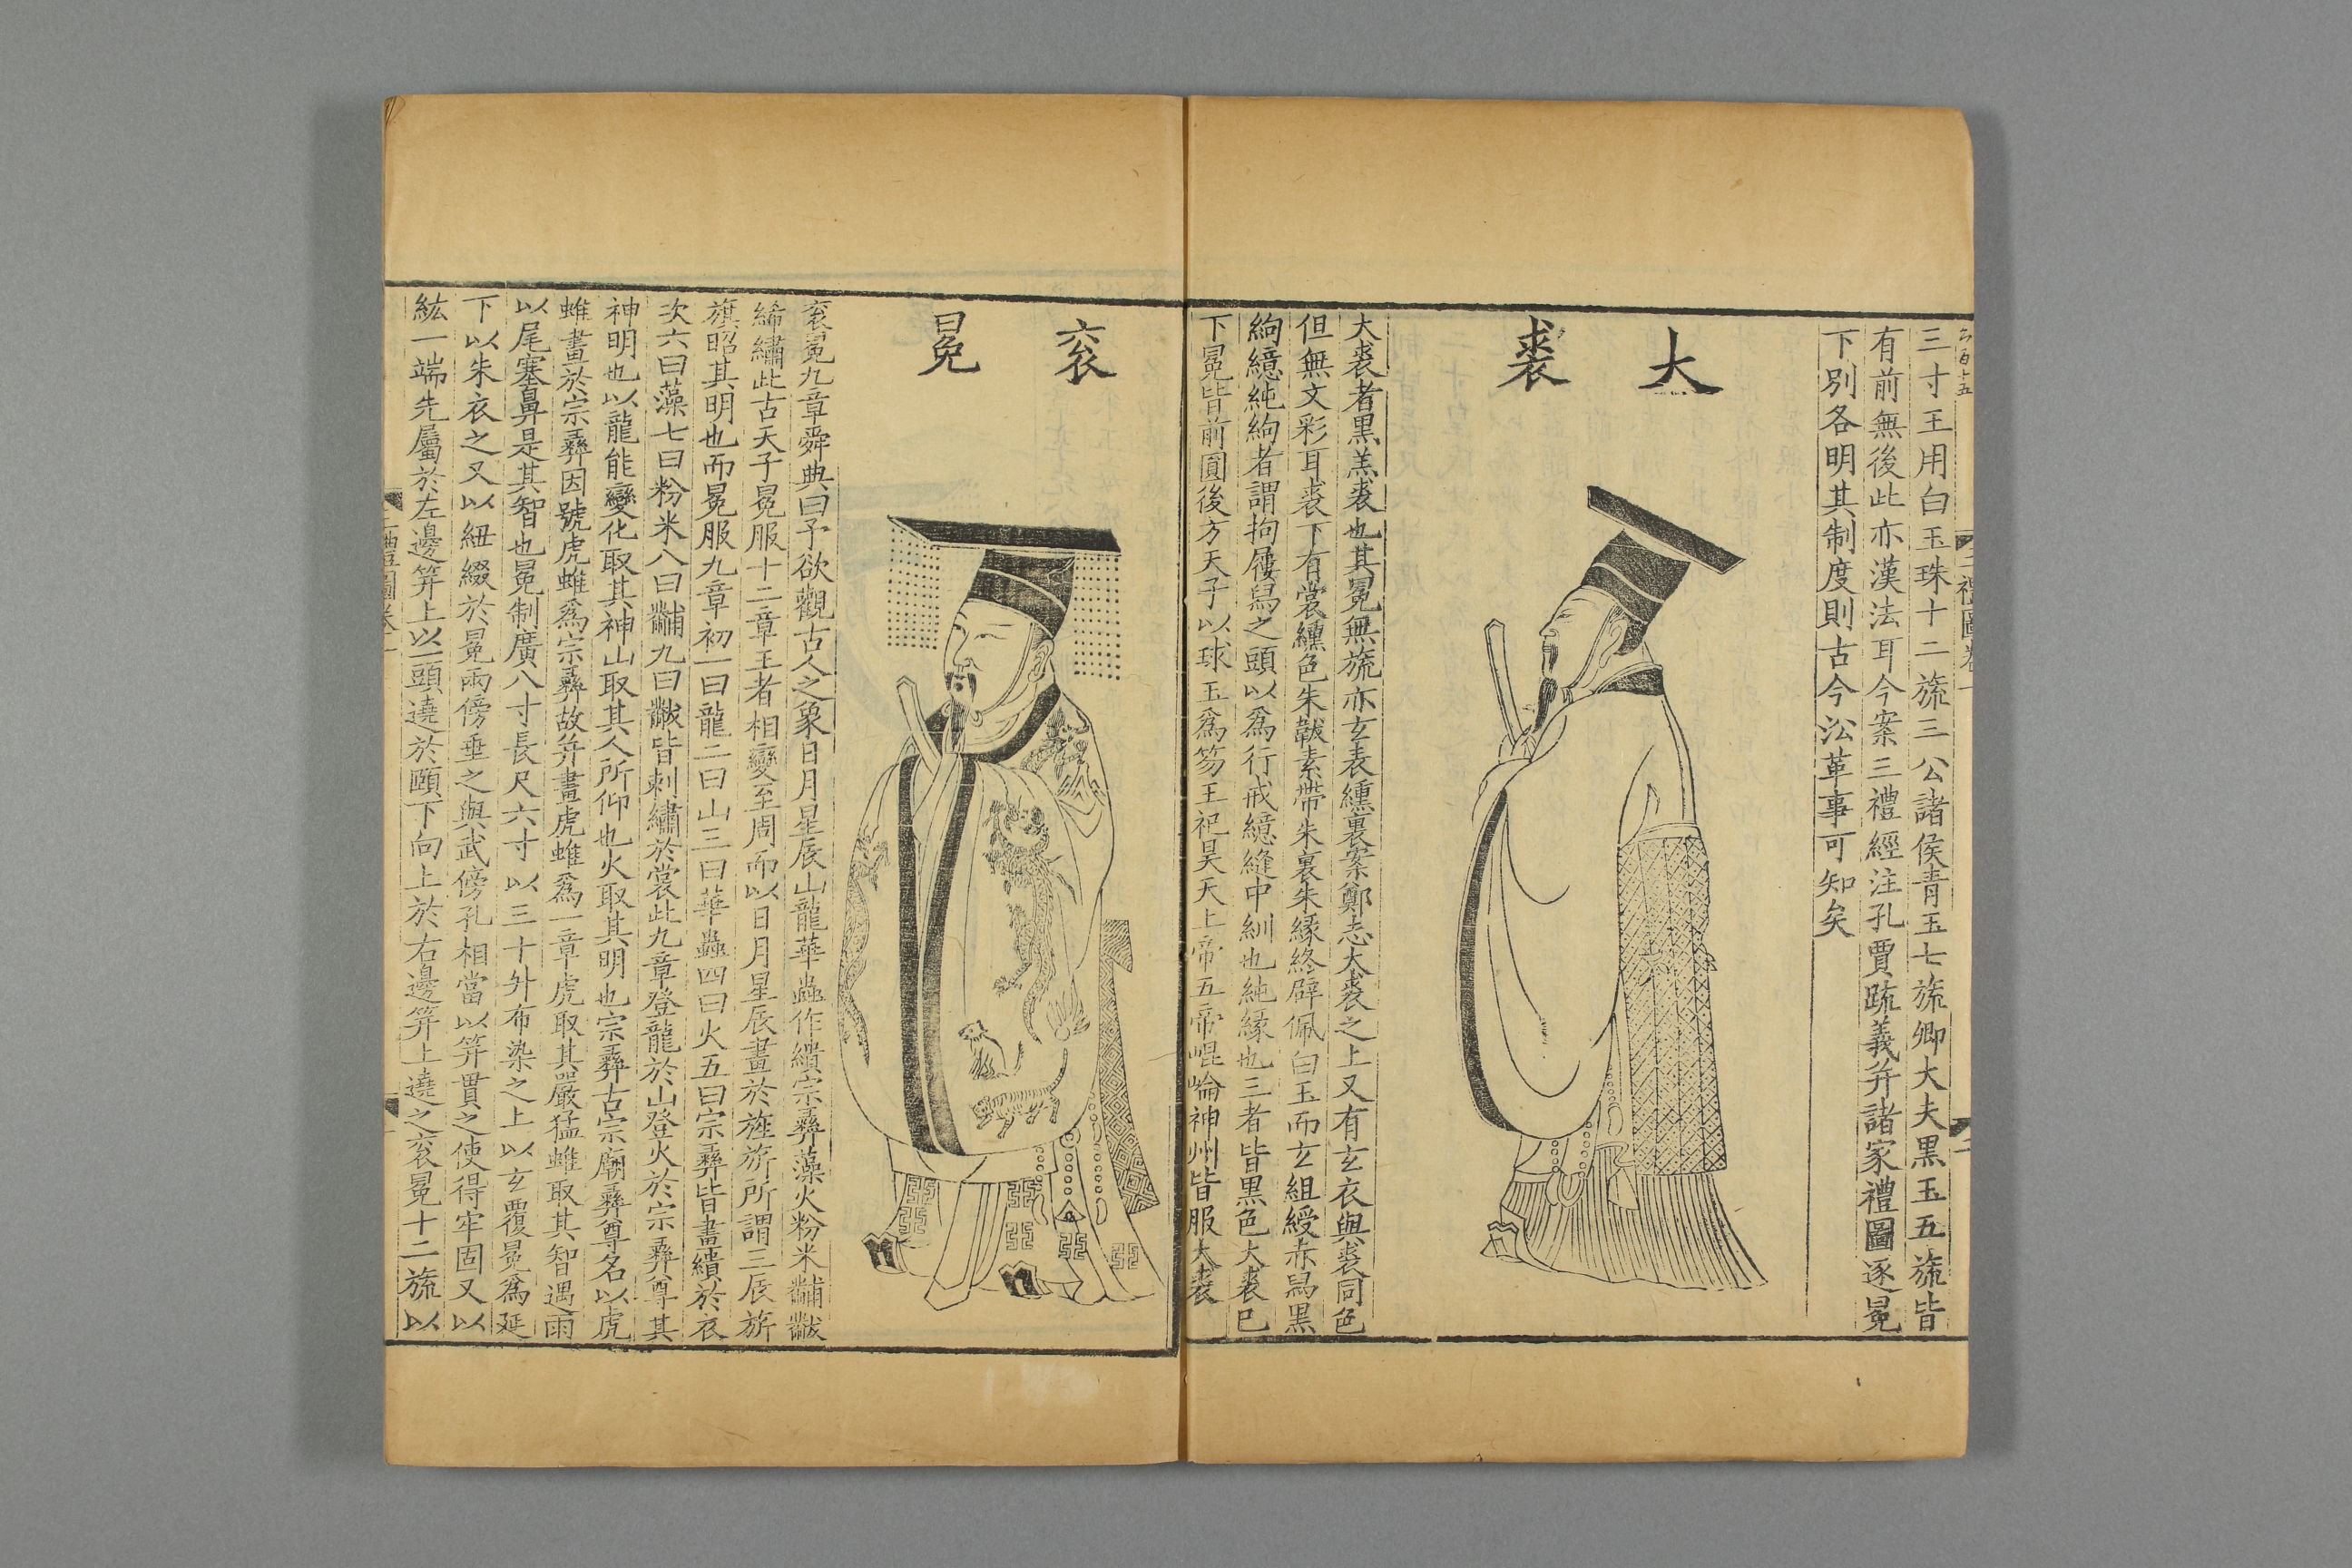 三寸王用白玉珠十二旒三公諸侯青玉七旒卿大夫黒玉五旒皆
有前無後此亦漢法耳今案三禮經注孔賈疏義并諸家禮圖逐冕
下別各明其制度則古今沿革事可知矣
大裘
大裘者黒羔裘也其冕無旒亦玄表纁裏案鄭志大裘之上又有玄衣與裘同色
但無文彩耳裘下有裳纁色朱韍素帶朱裏朱緣終辟佩白玉而玄組綬赤舄黒
絇繶純絇者謂拘屨舄之頭以爲行戒繶縫中紃也純緣也三者皆黒色大裘已
下冕皆前圓後方天子以球玉爲笏王祀昊天上帝五帝崐崘神州皆服大裘
衮冕
衮冕九章舜典曰予欲觀古人之象日月星辰山龍華蟲作繢宗彞藻火粉米黼黻
絺繡此古天子冕服十二章王者相變至周而以日月星辰畫於旌旂所謂三辰旂
旗昭其明也而冕服九章初一曰龍二曰山三曰華蟲四曰火五曰宗彞皆畫繢於衣
次六曰藻七曰粉米八曰黼九曰黻皆刺繡於裳此九章登龍於山登火於宗彞尊其
神明也以龍能變化取其神山取其人所仰也火取其明也宗彞古宗廟彞尊名以虎
蜼畫於宗彞因號虎蜼爲宗彞故并畫虎蜼爲一章虎取其嚴猛蜼取其智遇雨
以尾塞鼻是其智也冕制廣八寸長尺六寸以三十升布染之上以玄覆冕爲延
下以朱衣之又以紐綴於冕兩傍垂之與武傍孔相當以笄貫之使得牢固又以
紘一端先屬於左邊笄上以一頭遶於頤下向上於右邊笄上遶之衮冕十二旒以
三禮圖卷一